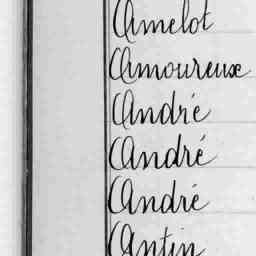 Amelot
Amoureuse
André
André
André
Antin